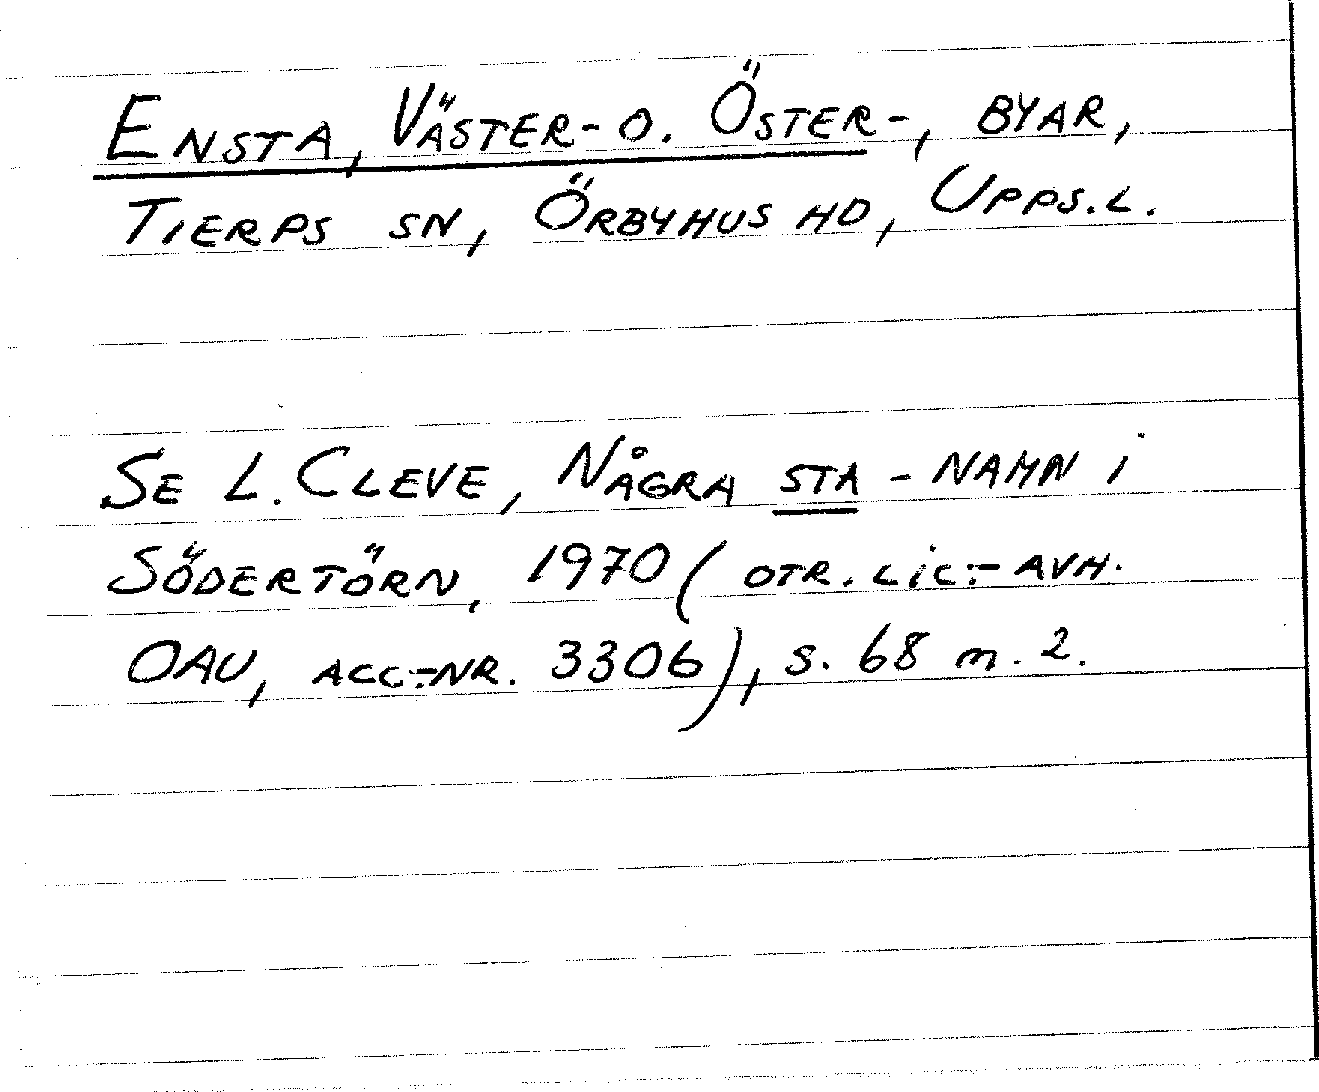 ENSTA, VÄSTER- O. ÖSTER-, BYAR,
TIERPS SN, ÖRBYHUS HD, UPPS.L.
SE L. CLEVE, NÅGRA STA-NAMN I
SÖDERTÖRN, 1970 (OTR. LIC.-AVH.
OAU, ACC.-NR. 3306), S. 68 m. 2.